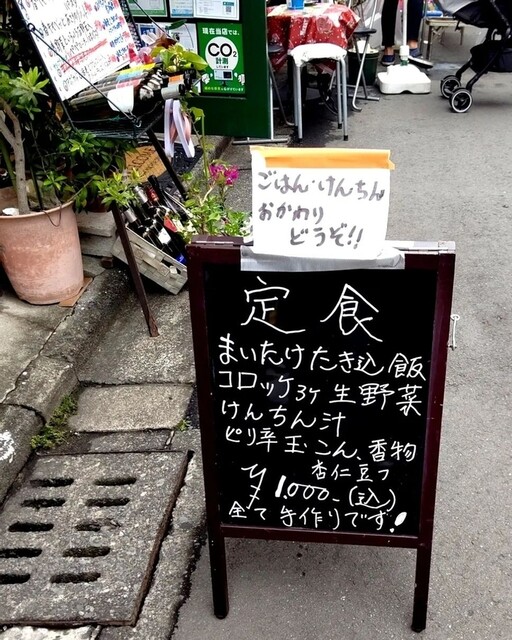 現在当店では、
CO₂
計測
ごはん・けんちん
おかわり
どうぞ!!
定食
まいたけたき込飯
コロッケ3ケ 生野菜
けんちん汁
ピリ辛玉こん、香物
杏仁豆フ
¥1.000-(込)
全て手作りです!